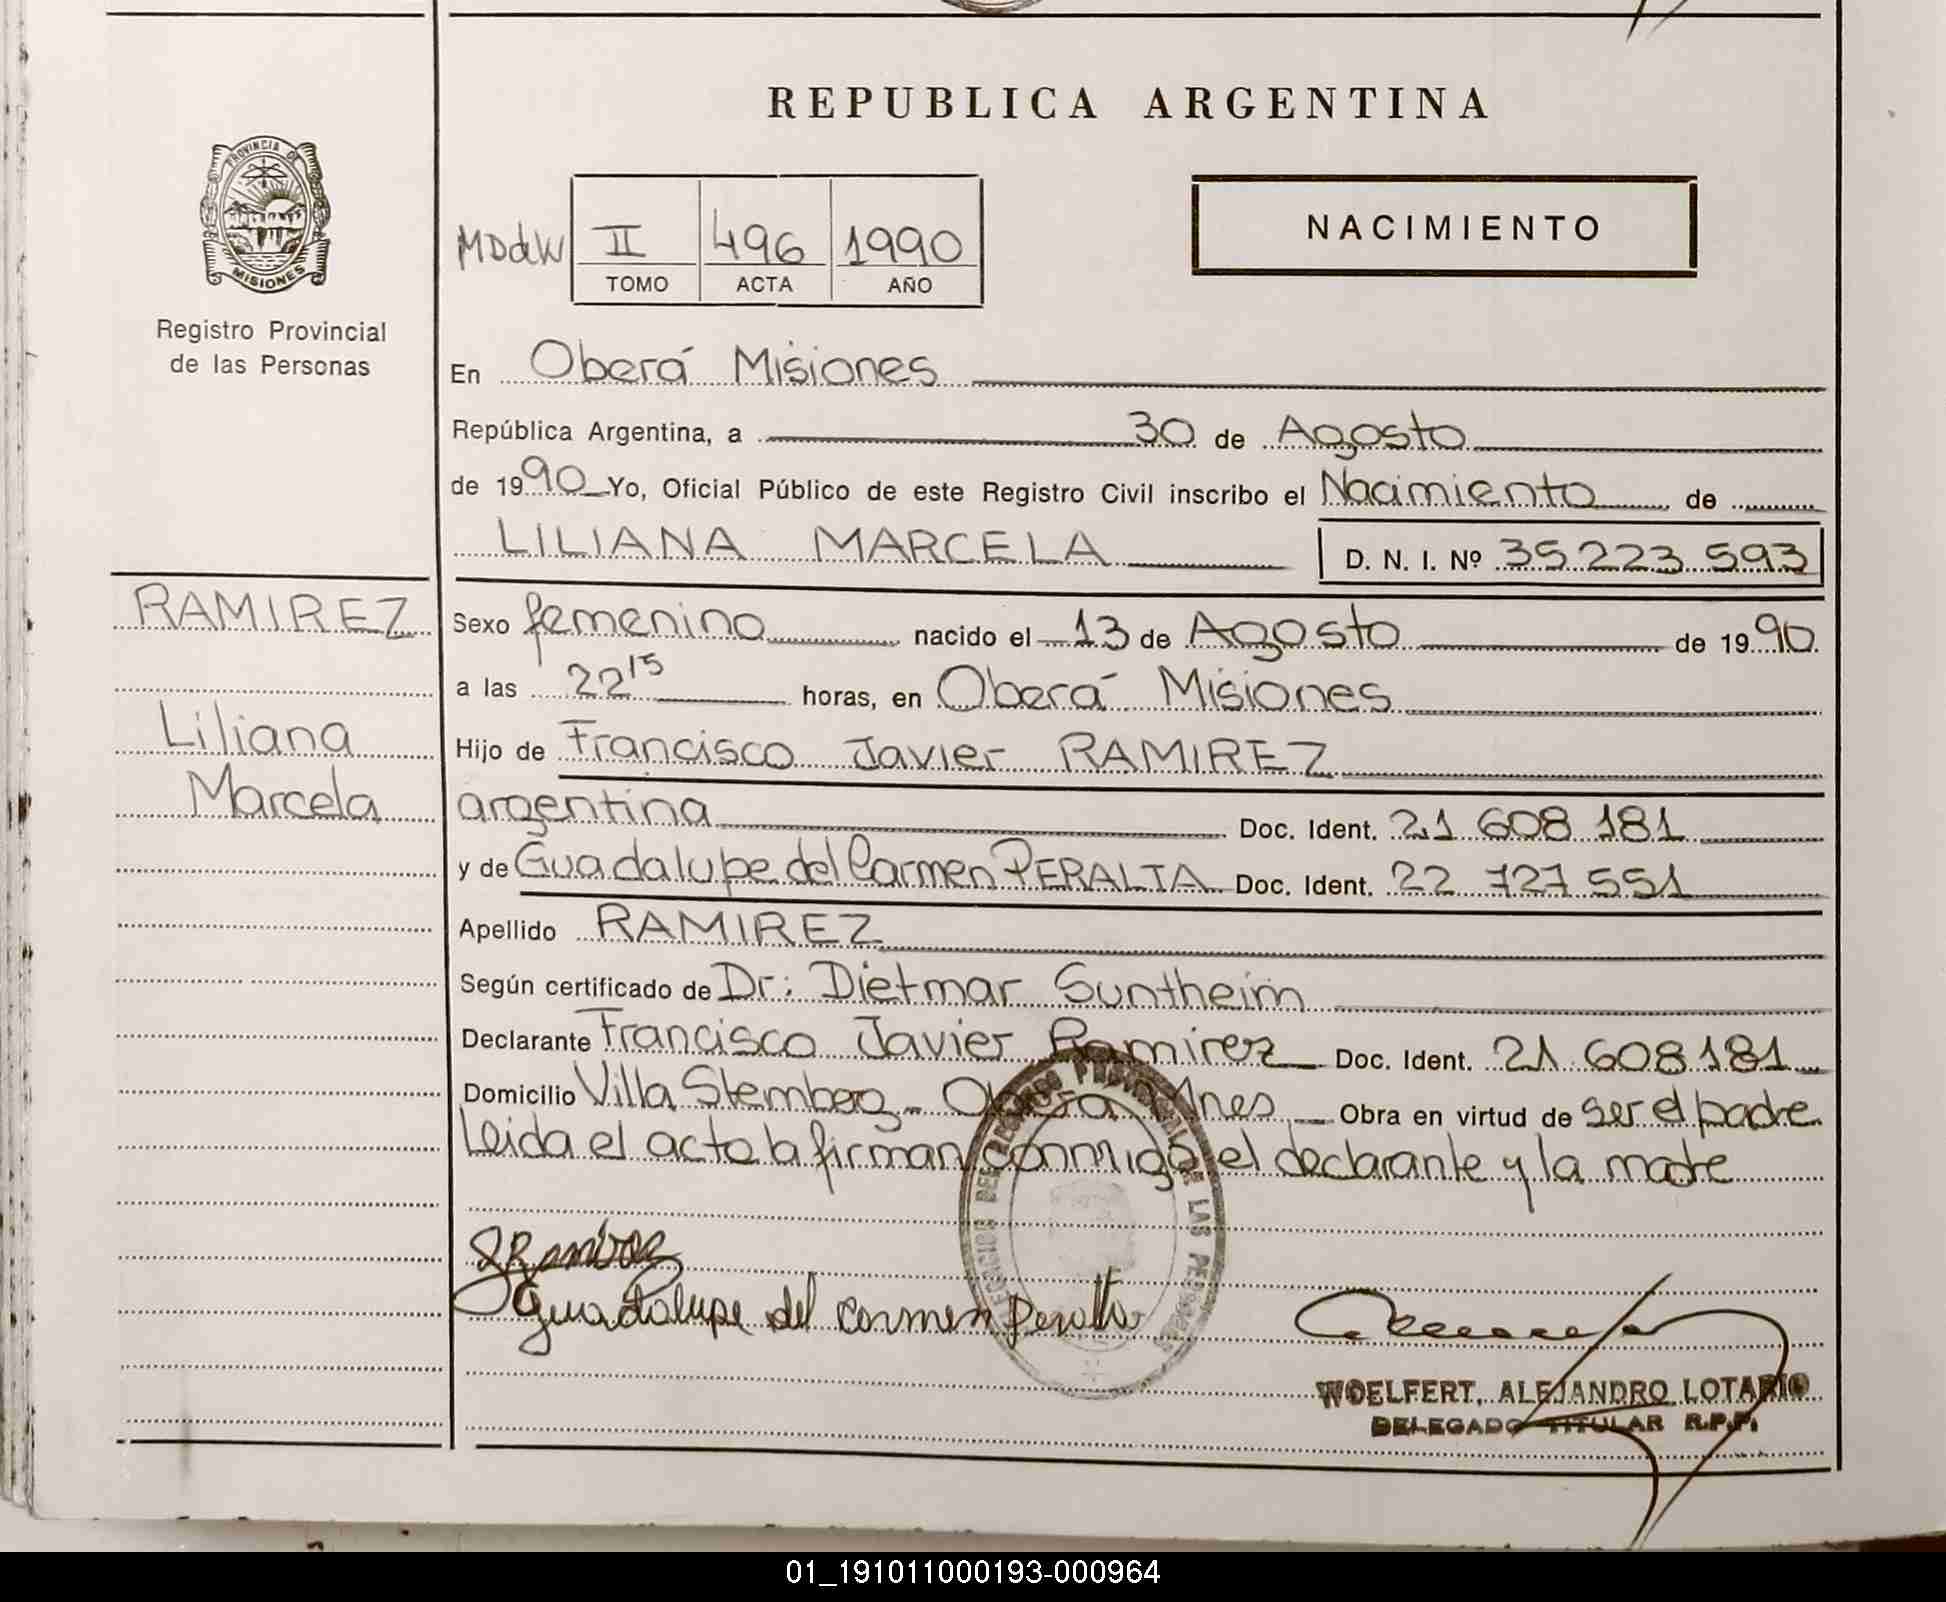 REPUBLICA ARGENTINA
PROVINCIA DE MISIONES
Registro Provincial
de las Personas
MDdW II 496 1990
TOMO ACTA AÑO
NACIMIENTO
En Oberá Misiones
República Argentina, a 30 de Agosto
de 1990 Yo, Oficial Público de este Registro Civil inscribo el Nacimiento de
LILIANA MARCELA D. N. I. Nº 35 223 593
RAMIREZ
Liliana
Marcela
Sexo femenino nacido el 13 de Agosto de 1990
a las 22 15 horas, en Oberá Misiones
Hijo de Francisco Javier RAMIREZ
argentina Doc. Ident. 21 608 181
y de Guadalupe del Carmen PERALTA Doc. Ident. 22 727 551
Apellido RAMIREZ
Según certificado de Dr: Dietmar Suntheim
Declarante Francisco Javier Ramirez Doc. Ident. 21 608 181
Domicilio Villa Stemberg - Oberá Mnes Obra en virtud de ser el padre
Leida el acta la firman conmigo el declarante y la madre
Guadalupe del Carmen Peralta
WOELFERT, ALEJANDRO LOTARIO
DELEGADO TITULAR R.P.P.
01_191011000193-000964